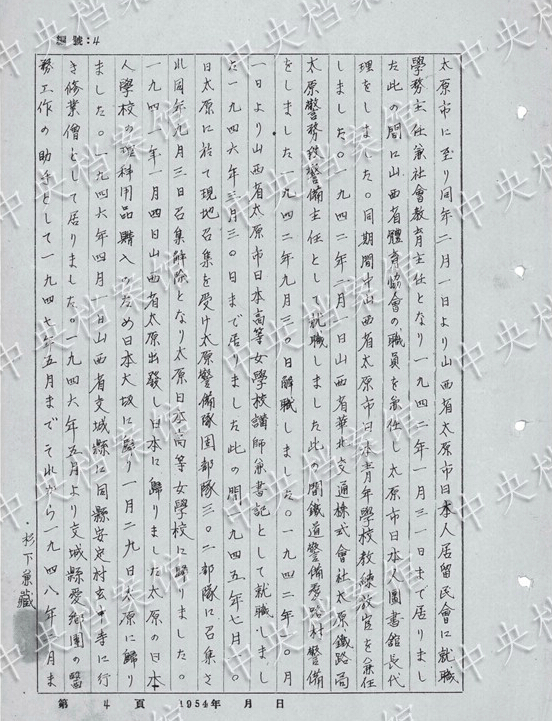 編號:4
太原市に至り同年二月一日より山西省太原市日本人居留民會に就職
學務主任兼社會教育主任となり一九四二年一月三一日まで居りまし
た此の間に山西省體育協會の職員を兼任し太原市日本人圖書館長代
理をしました。同期間中山西省太原市日本青年學校教練教官を兼任
しました。一九四二年二月一日山西省華北交通株式會社太原鐵路局
太原警務段警備主任として就職しました此の間鐵道警備愛路村警備
をしました一九四二年九月三〇日辭職しました。一九四二年一〇月
一日より山西省太原市日本高等女學校講師兼書記として就職しまし
た一九四六年三月三〇日まで居りました此の間一九四五年七月一〇
日太原に於て現地召集を受け太原警備隊固部隊三〇二部隊に召集さ
れ同年九月三日召集解除となり太原日本高等女學校に歸りました。
一九四一年一月四日山西省太原出發し日本に歸りました太原の日本
人學校の理科用品購入のため日本大坂に歸り一月二九日太原に歸り
ました。一九四六年四月一日山西省文城縣に同縣安定村玄中寺に行
き修業僧として居りました。一九四六年五月より文城縣愛鄉團の醫
務工作の助手として一九四七年五月までそれから一九四八年三月ま
杉下兼藏
第 4 頁 1954年 月 日
中央档案馆